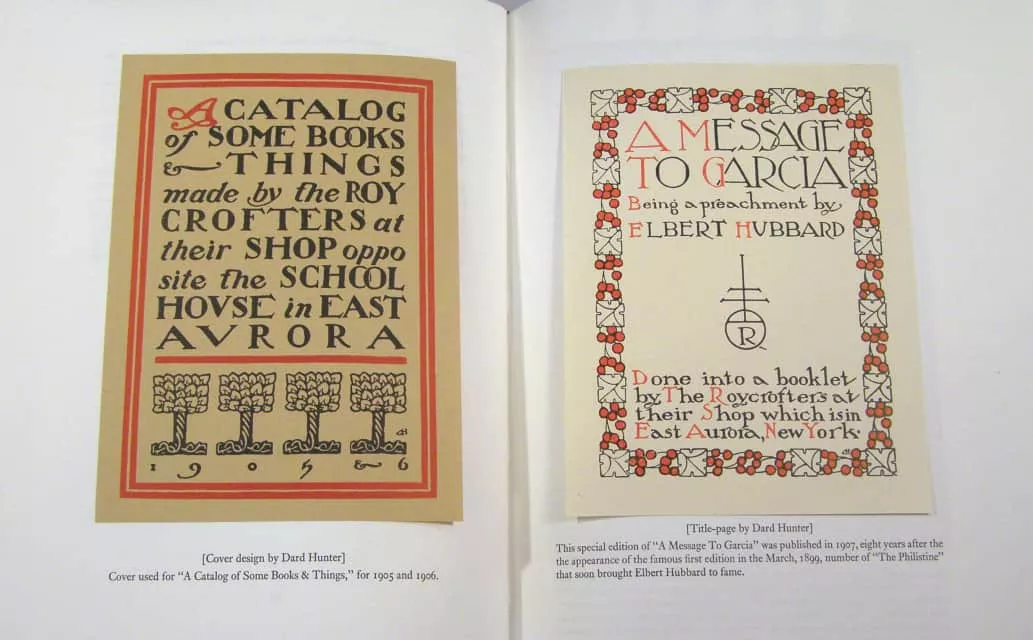 A CATALOG
of SOME BOOKS
& THINGS
made by the ROY
CROFTERS at
their SHOP oppo
site the SCHOOL
HOVSE in EAST
AVRORA
1905 & 6
[Cover design by Dard Hunter]
Cover used for "A Catalog of Some Books & Things," for 1905 and 1906.
A MESSAGE
TO GARCIA
Being a preachment by
ELBERT HUBBARD
R
Done into a booklet
by The Roycrofters at
their Shop which is in
East Aurora, New York
[Title-page by Dard Hunter]
This special edition of "A Message To Garcia" was published in 1907, eight years after the
the appearance of the famous first edition in the March, 1899, number of "The Philistine"
that soon brought Elbert Hubbard to fame.